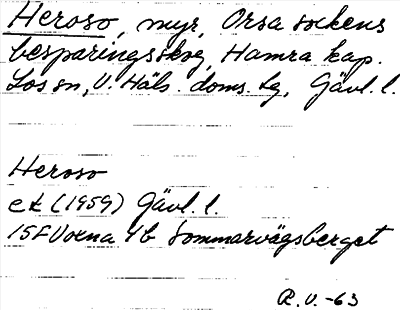 Heroso, myr, Orsa sockens
besparingsskog, Hamra kap.
Los sn, V. Häls. doms. tg, Gävl. l.
Heroso
ek (1959) Gävl. l.
15F Voxna 4b Sommarvägsberget
R.V.-63